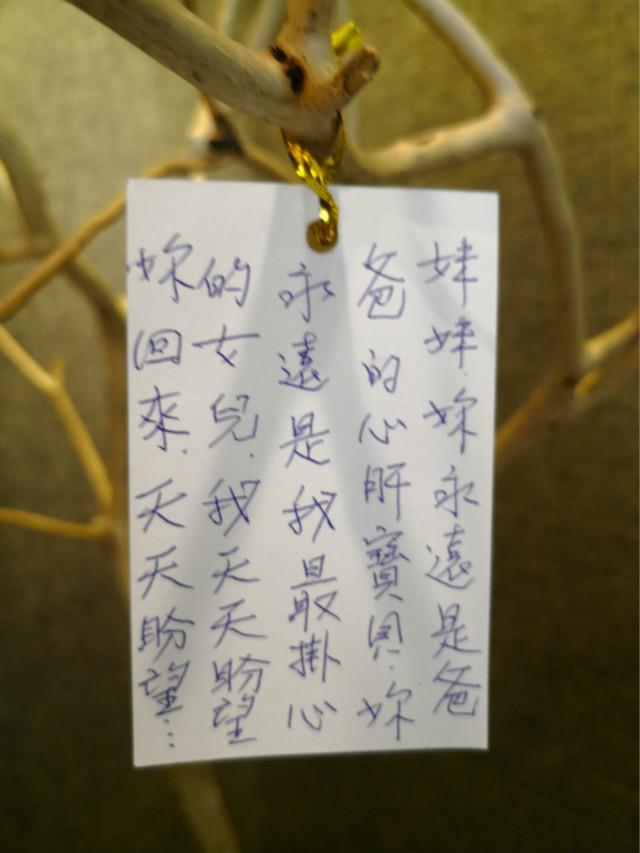 妹妹.妳永遠是爸
爸的心肝寶貝.妳
永遠是我最掛心
的女兒.我天天盼望
妳回來.天天盼望...